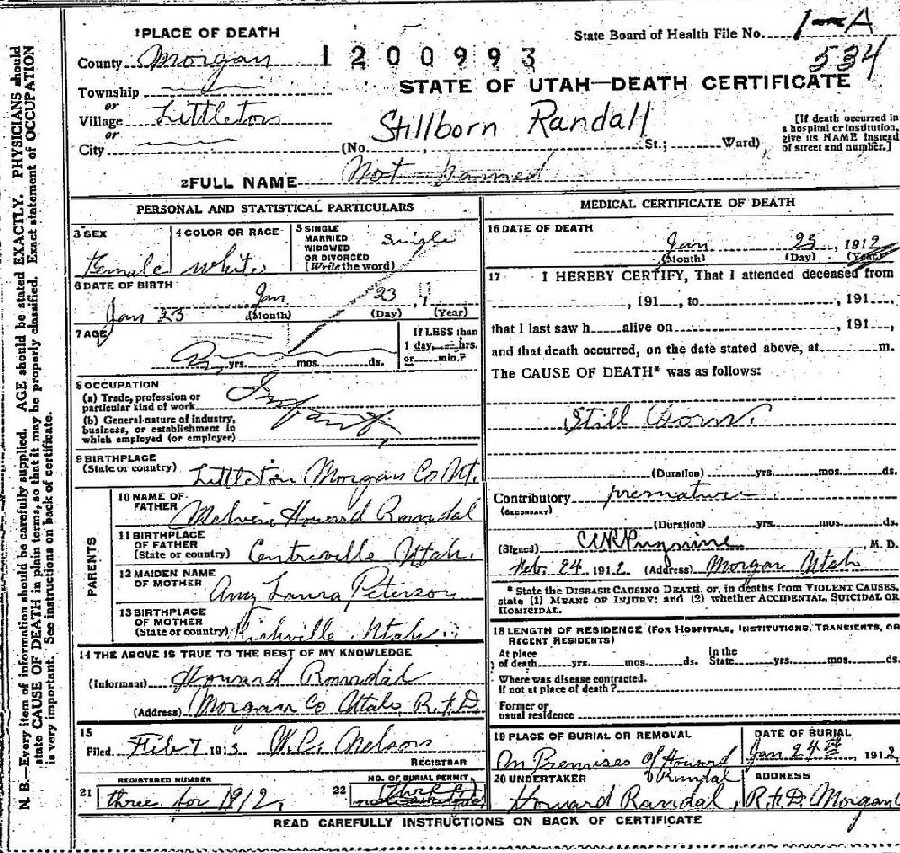 1PLACE OF DEATH
State Board of Health File No. 1-A
534
County Morgan
1200993
Township
or
STATE OF UTAH—DEATH CERTIFICATE
Village Littleton
or
City
Stillborn Randall
(No. St.; Ward)
[If death occurred in a hospital or institution, give its NAME instead of street and number.]
2FULL NAME Not named
PERSONAL AND STATISTICAL PARTICULARS
3 SEX
Female
4 COLOR OR RACE
White
5 SINGLE MARRIED WIDOWED OR DIVORCED (Write the word)
Single
6 DATE OF BIRTH
Jan 23 Jan 23
(Month) (Day) (Year)
7 AGE
yrs. mos. ds.
If LESS than 1 day, hrs. or min.?
8 OCCUPATION
(a) Trade, profession or particular kind of work
(b) General nature of industry, business, or establishment in which employed (or employer)
Infant
9 BIRTHPLACE
(State or country) Littleton Morgan Co Ut.
PARENTS
10 NAME OF FATHER Howard Randal
11 BIRTHPLACE OF FATHER (State or country) Centreville Utah.
12 MAIDEN NAME OF MOTHER Amy Laura Peterson
13 BIRTHPLACE OF MOTHER (State or country) Utah
14 THE ABOVE IS TRUE TO THE BEST OF MY KNOWLEDGE
(Informant) Howard Randal
(Address) Morgan Co Utah, R.F.D.
15
Filed Feb 7 191 Nelson
REGISTRAR
REGISTERED NUMBER
21 three for 1912,
NO. OF BURIAL PERMIT
22
MEDICAL CERTIFICATE OF DEATH
16 DATE OF DEATH
Jan 23 1912
(Month) (Day) (Year)
17 I HEREBY CERTIFY, That I attended deceased from
, 191 , to , 191 ,
that I last saw h alive on , 191 ,
and that death occurred, on the date stated above, at m.
The CAUSE OF DEATH* was as follows:
Still Born.
(Duration) yrs. mos. ds.
Contributory premature
(SECONDARY)
(Duration) yrs. mos. ds.
(Signed) M. D.
24 1912 (Address) Morgan Utah
* State the DISEASE CAUSING DEATH, or, in deaths from VIOLENT CAUSES, state (1) MEANS OF INJURY; and (2) whether ACCIDENTAL, SUICIDAL OR HOMICIDAL.
18 LENGTH OF RESIDENCE (FOR HOSPITALS, INSTITUTIONS, TRANSIENTS, OR RECENT RESIDENTS)
At place of death yrs. mos. ds. In the State yrs. mos. ds.
Where was disease contracted, If not at place of death?
Former or usual residence
19 PLACE OF BURIAL OR REMOVAL
On Premises of Howard Randal
DATE OF BURIAL
Jan 24th 1912
20 UNDERTAKER
Howard Randal,
ADDRESS
R.F.D. Morgan
READ CAREFULLY INSTRUCTIONS ON BACK OF CERTIFICATE
N. B.—Every item of information should be carefully supplied. AGE should be stated EXACTLY. PHYSICIANS should
state CAUSE OF DEATH in plain terms, so that it may be properly classified. Exact statement of OCCUPATION
is very important. See instructions on back of certificate.